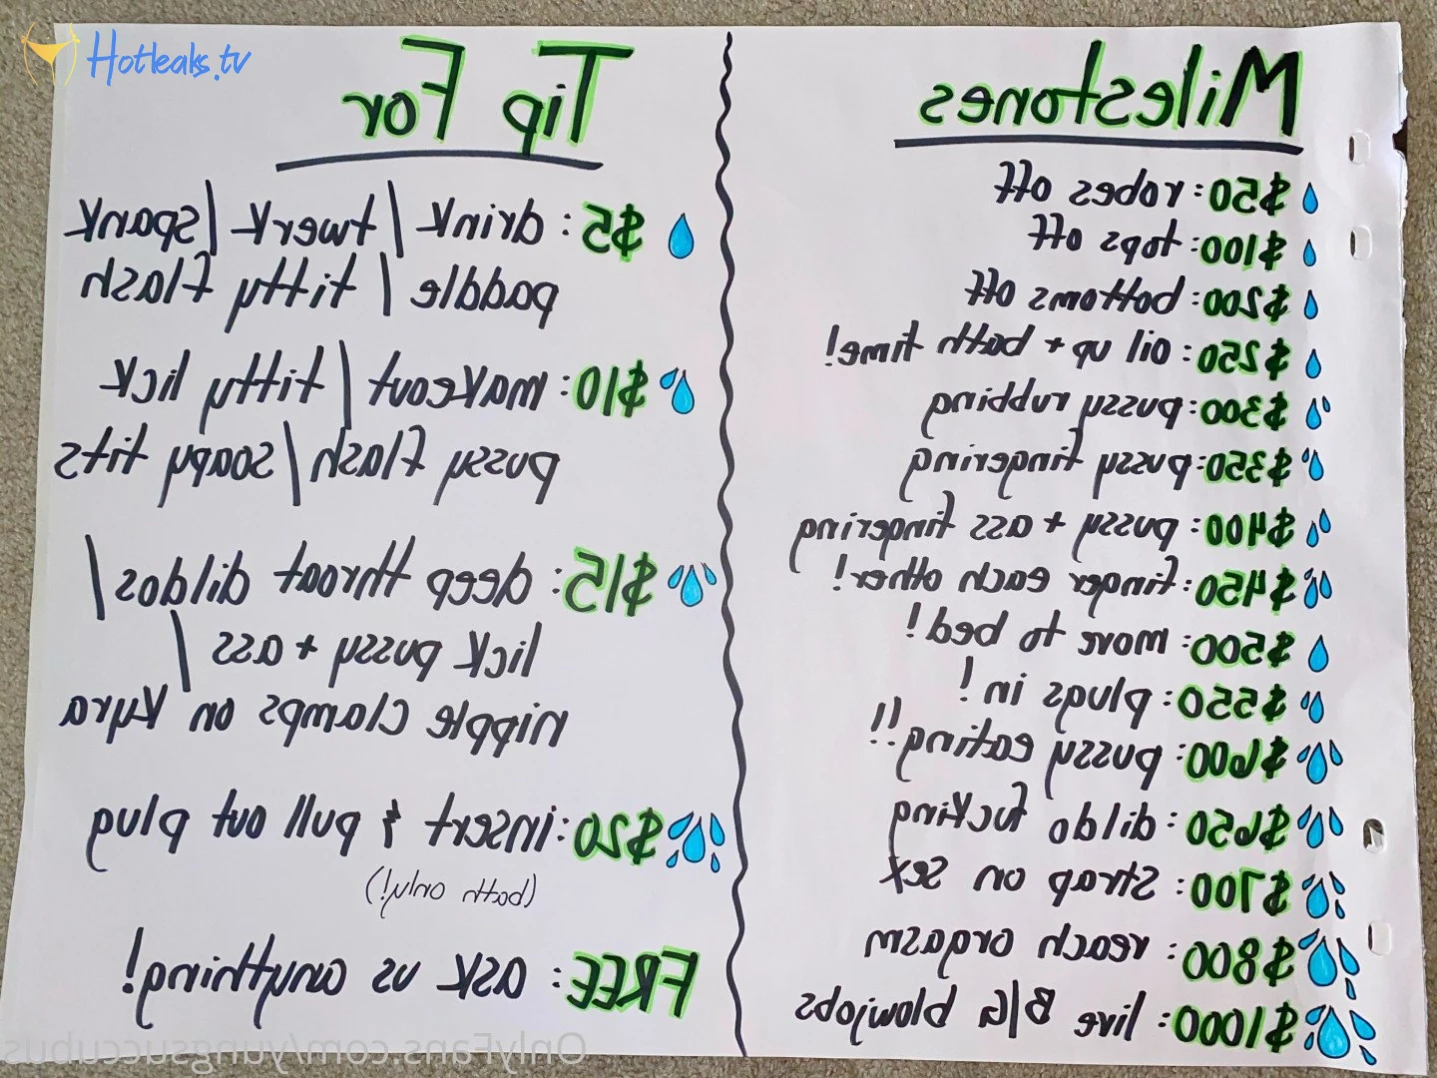 Hotleaks.tv
Milestones
$50: robes off
$100: tops off
$200: bottoms off
$250: oil up + bath time!
$300: pussy rubbing
$350: pussy fingering
$400: pussy + ass fingering
$450: finger each other!
$500: move to bed!
$550: plugs in!
$600: pussy eating!!
$650: dildo fucking
$700: strap on sex
$800: reach orgasm
$1000: live B/G blowjobs
Tip For
$5: drink / twerk / spank
paddle / titty flash
$10: makeout / titty lick
pussy flash / soapy tits
$15: deep throat dildos /
lick pussy + ass /
nipple clamps on Kyra
$20: insert & pull out plug
(bath only!)
FREE: ask us anything!
OnlyFans.com/yungsuccubus